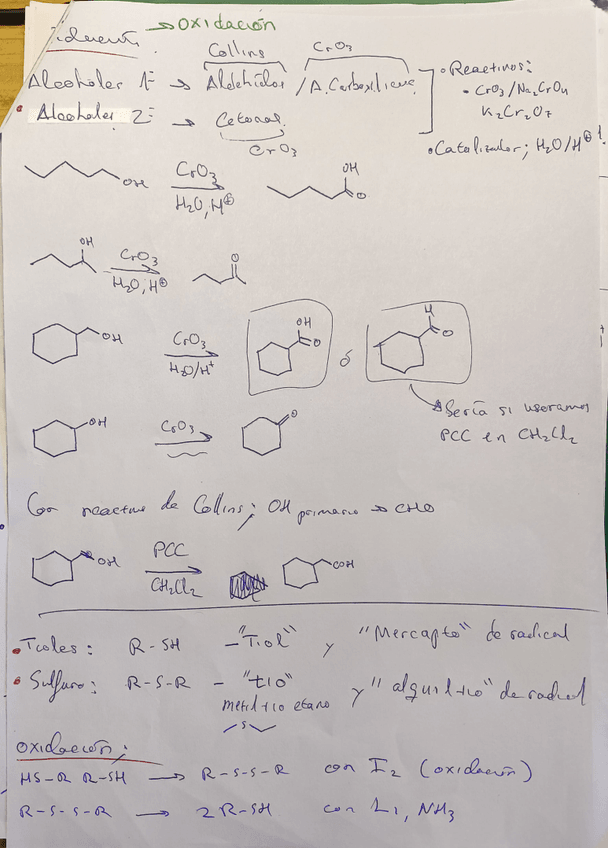 → OXIDACIÓN
Collins CrO₃
Alcoholes 1º → Aldehídos / A. Carboxílicos
• Reactivos:
• CrO₃/Na₂CrO₄
K₂Cr₂O₇
• Alcoholes 2º → Cetonas
CrO₃
• Catalizador; H₂O/H⊕
OH CrO₃ OH
H₂O, H⊕ O
OH CrO₃ O
H₂O, H⊕
OH CrO₃ OH H
H₂O/H⁺ O ó O
Sería si usaramos
PCC en CH₂Cl₂
OH CrO₃ O
Con reactivo de Collins; OH primario → CHO
OH PCC COH
CH₂Cl₂
• Tioles: R-SH - "Tiol" y "Mercapto" de radical
• Sulfuro: R-S-R - "tio" y "alquiltio" de radical
metil tio etano
S
OXIDACIÓN;
HS-R R-SH → R-S-S-R con I₂ (oxidación)
R-S-S-R → 2 R-SH con Li, NH₃